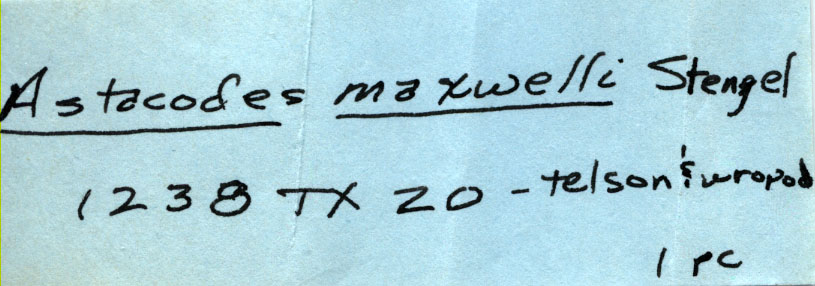 Astacodes maxwelli Stengel
1238 TX 20 - telson & uropod
1 pc